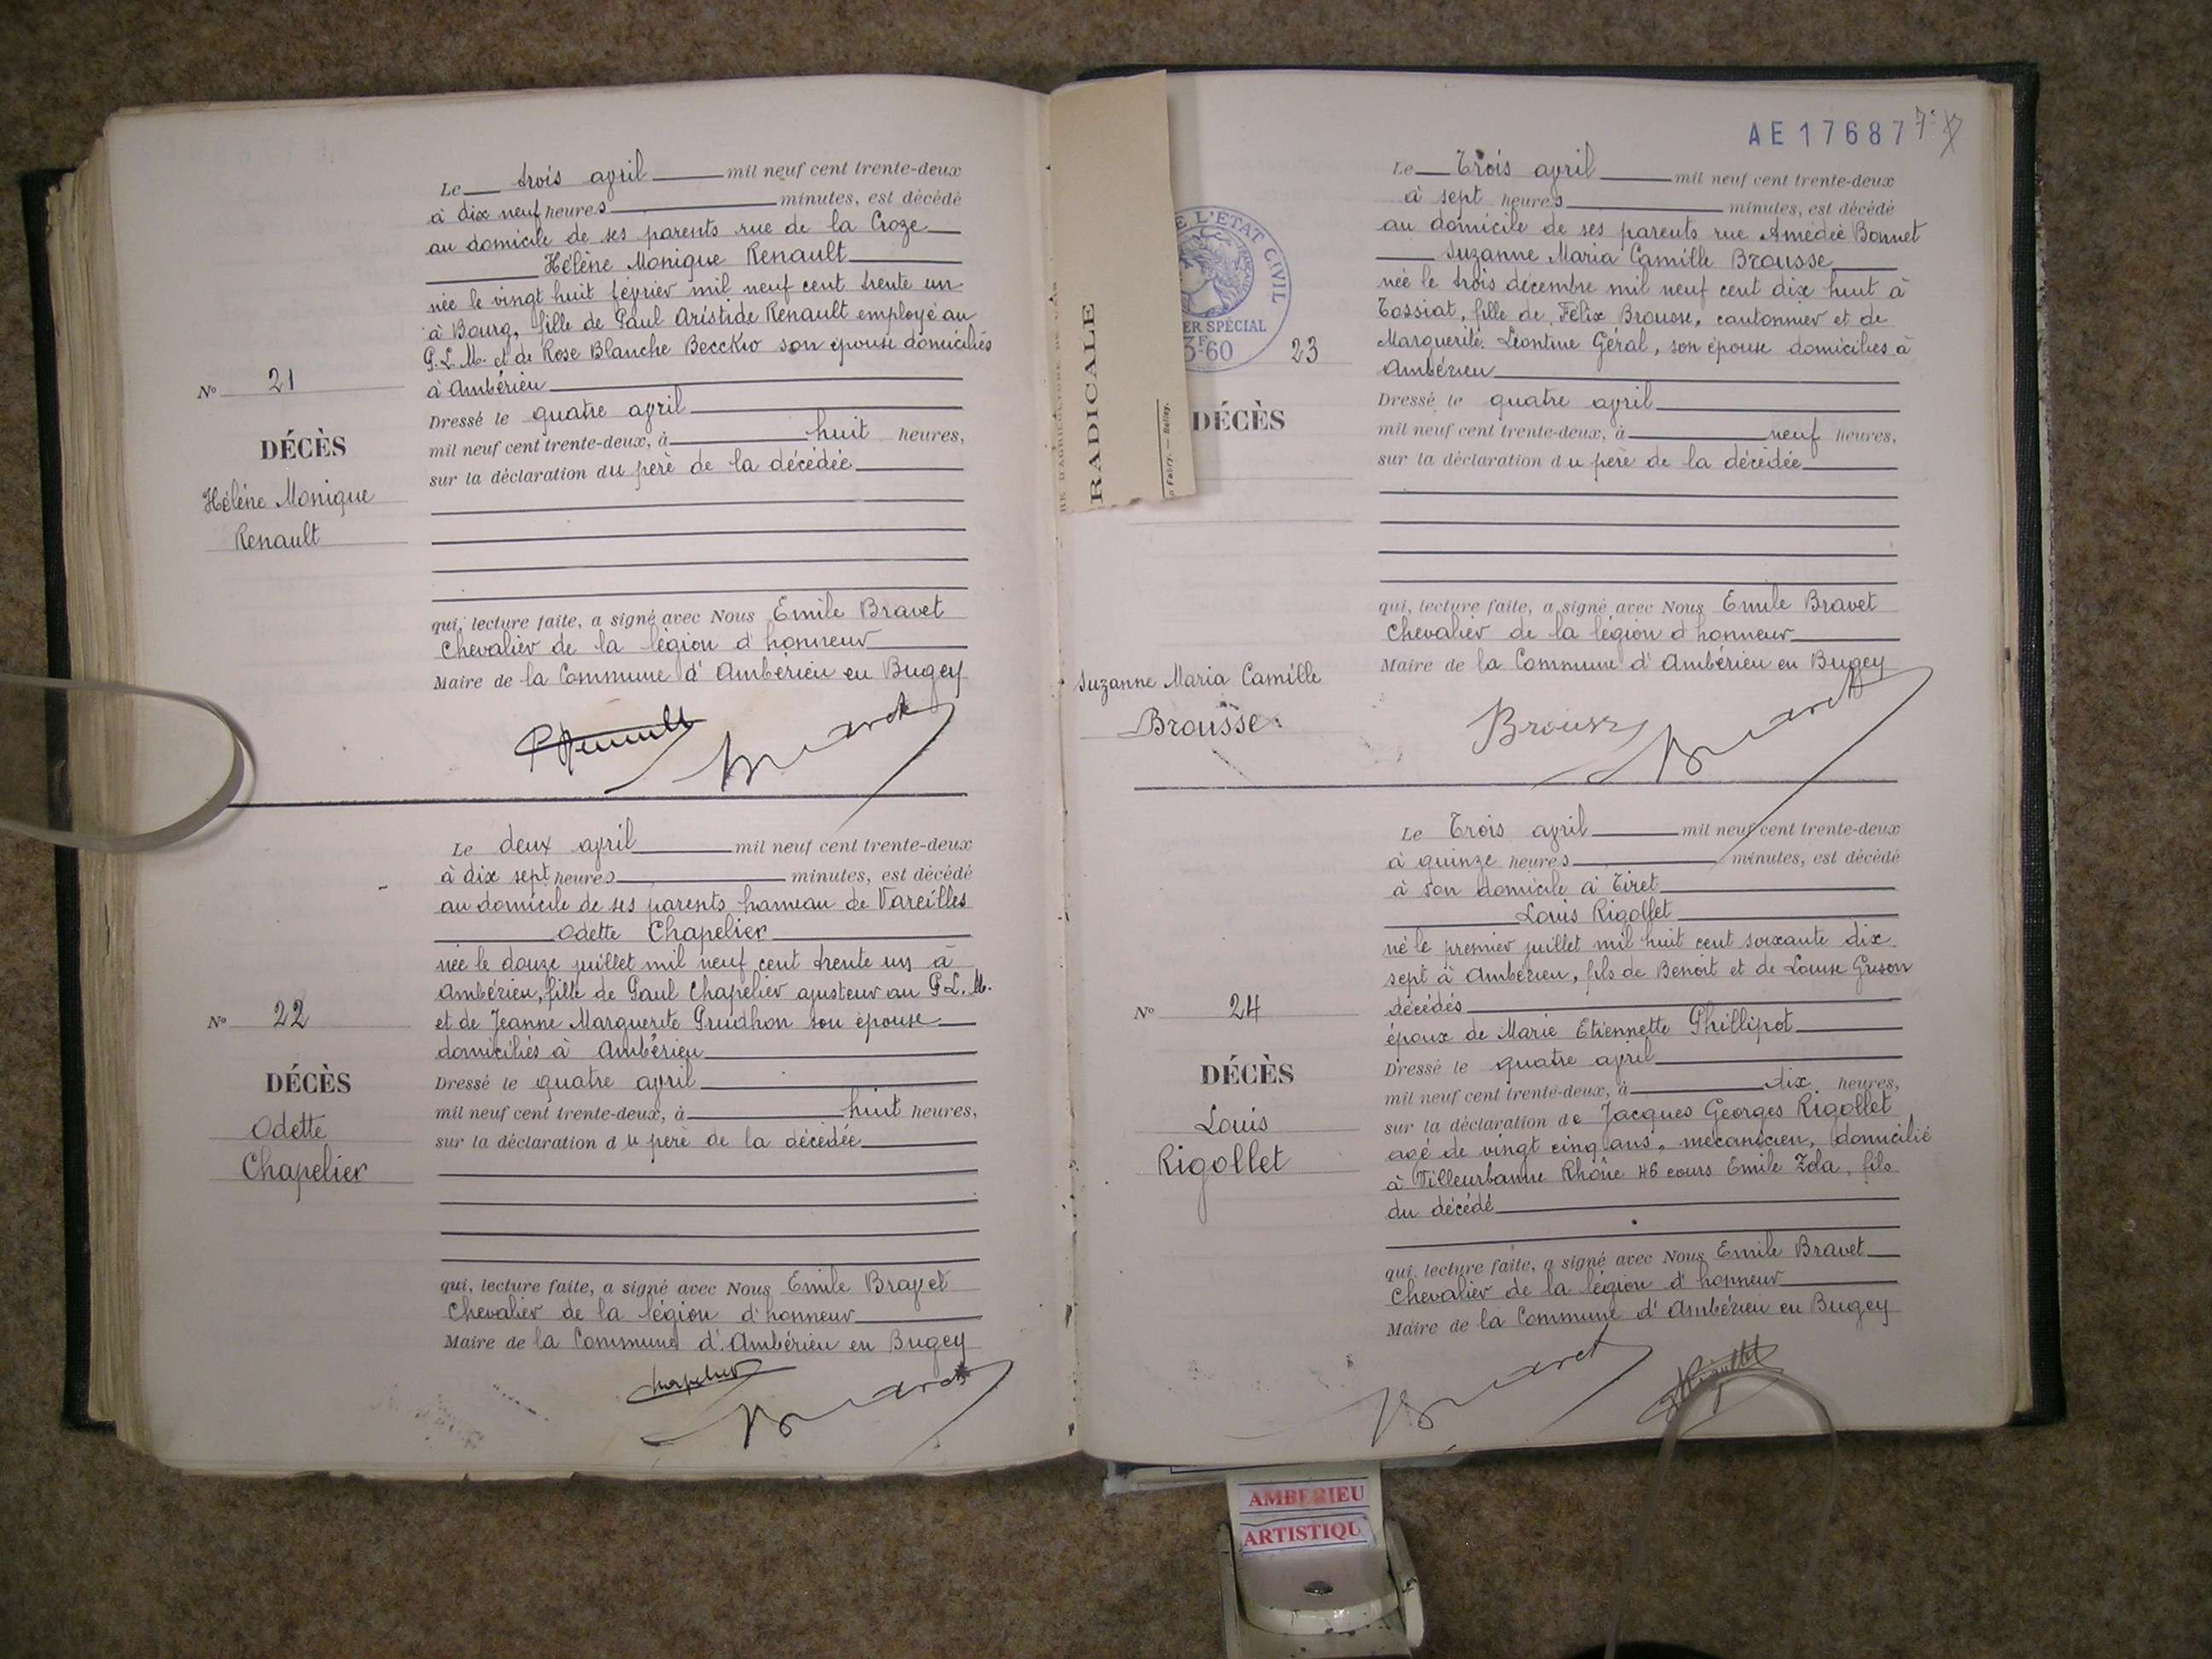 Le trois avril mil neuf cent trente-deux
à dix neuf heures minutes, est décédé
au domicile de ses parents rue de la Croze
Hélène Monique Renault
née le vingt huit février mil neuf cent trente un
à Bourg, fille de Paul Aristide Renault employé au
P.L.M. et de Rose Blanche son épouse domiciliés
à Ambérieu
Dressé le quatre avril
mil neuf cent trente-deux, à huit heures,
sur la déclaration du père de la décédée
qui, lecture faite, a signé avec Nous Emile Bravet
Chevalier de la légion d'honneur
Maire de la Commune d'Ambérieu en Bugey
No 21
DÉCÈS
Hélène Monique
Renault
Le deux avril mil neuf cent trente-deux
à dix sept heures minutes, est décédé
au domicile de ses parents hameau de Vareilles
Odette Chapelier
née le douze juillet mil neuf cent trente un à
Ambérieu, fille de Paul Chapelier ajusteur au P.L.M.
et de Jeanne Marguerite Prudhon son épouse
domiciliés à Ambérieu
Dressé le quatre avril
mil neuf cent trente-deux, à huit heures,
sur la déclaration du père de la décédée
qui, lecture faite, a signé avec Nous Emile Bravet
Chevalier de la légion d'honneur
Maire de la Commune d'Ambérieu en Bugey
Chapelier
No 22
DÉCÈS
Odette
Chapelier
RADICALE
AE 17687
L'ETAT CIVIL
SPÉCIAL
60
Le Trois avril mil neuf cent trente-deux
à sept heures minutes, est décédé
au domicile de ses parents rue Amédée Bonnet
Suzanne Maria Camille Brousse
née le trois décembre mil neuf cent dix huit à
Tossiat, fille de Félix Brousse, cantonnier et de
Marguerite Léontine Géral, son épouse domiciliés à
Ambérieu
Dressé le quatre avril
mil neuf cent trente-deux, à neuf heures,
sur la déclaration du père de la décédée
qui, lecture faite, a signé avec Nous Emile Bravet
Chevalier de la légion d'honneur
Maire de la Commune d'Ambérieu en Bugey
Brousse
23
DÉCÈS
Suzanne Maria Camille
Brousse
Le Trois avril mil neuf cent trente-deux
à quinze heures minutes, est décédé
à son domicile à Tiret
Louis Rigollet
né le premier juillet mil huit cent soixante dix
sept à Ambérieu, fils de Benoit et de Louise Grison
décédés
époux de Marie Etiennette Phillipot
Dressé le quatre avril
mil neuf cent trente-deux, à dix heures,
sur la déclaration de Jacques Georges Rigollet
agé de vingt cinq ans, mécanicien, domicilié
à Villeurbanne Rhône 46 cours Emile Zola, fils
du décédé
qui, lecture faite, a signé avec Nous Emile Bravet
Chevalier de la légion d'honneur
Maire de la Commune d'Ambérieu en Bugey
No 24
DÉCÈS
Louis
Rigollet
AMBERIEU
ARTISTIQU